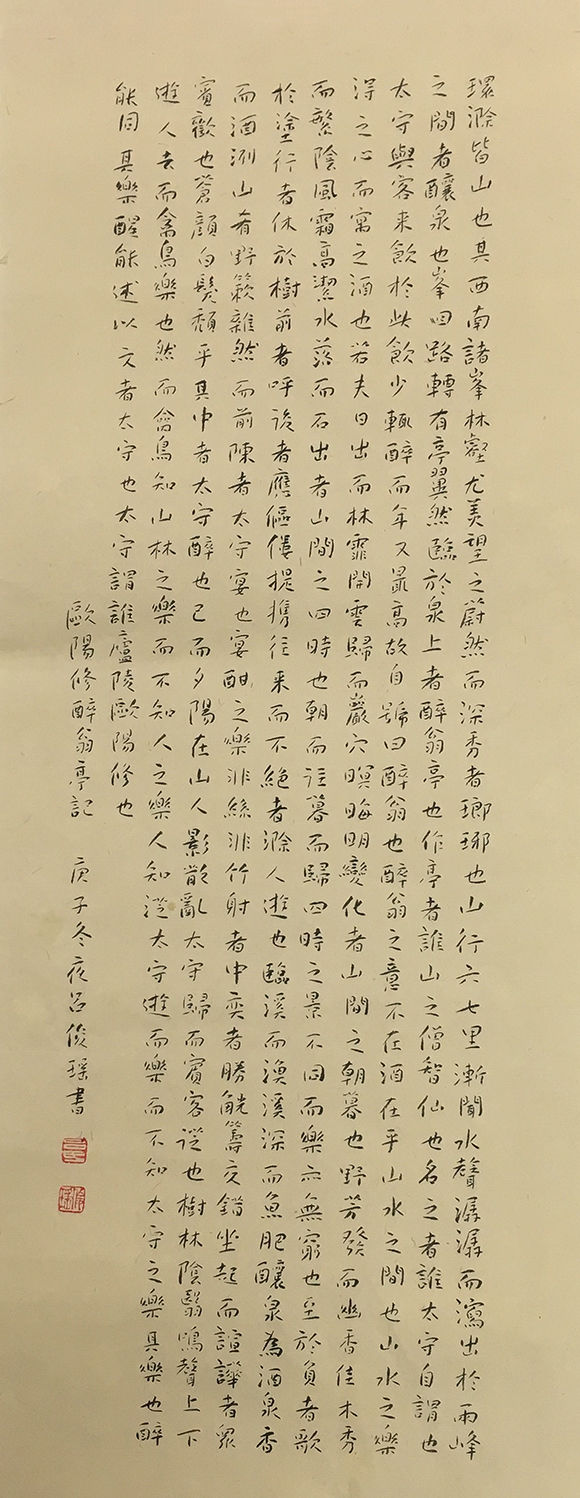 環滁皆山也其西南諸峯林壑尤美望之蔚然而深秀者瑯琊也山行六七里漸聞水聲潺潺而瀉出於兩峰
之間者釀泉也峯回路轉有亭翼然臨於泉上者醉翁亭也作亭者誰山之僧智仙也名之者誰太守自謂也
太守與客来飲於此飲少輒醉而年又最高故自號曰醉翁也醉翁之意不在酒在乎山水之間也山水之樂
得之心而寓之酒也若夫日出而林霏開雲歸而巖穴暝晦明變化者山間之朝暮也野芳發而幽香佳木秀
而繁陰風霜高潔水落而石出者山間之四時也朝而往暮而歸四時之景不同而樂亦無窮也至於負者歌
於塗行者休於樹前者呼後者應傴僂提攜往来而不絕者滁人遊也臨溪而漁溪深而魚肥釀泉為酒泉香
而酒洌山肴野簌雜然而前陳者太守宴也宴酣之樂非絲非竹射者中奕者勝觥籌交錯坐起而諠譁者眾
賓歡也蒼顏白髮頹乎其中者太守醉也已而夕陽在山人影散亂太守歸而賓客從也樹林陰翳鳴聲上下
遊人去而禽鳥樂也然而禽鳥知山林之樂而不知人之樂人知從太守遊而樂而不知太守之樂其樂也醉
能同其樂醒能述以文者太守也太守謂誰廬陵歐陽修也
歐陽修醉翁亭記 庚子冬夜呂俊瑤書